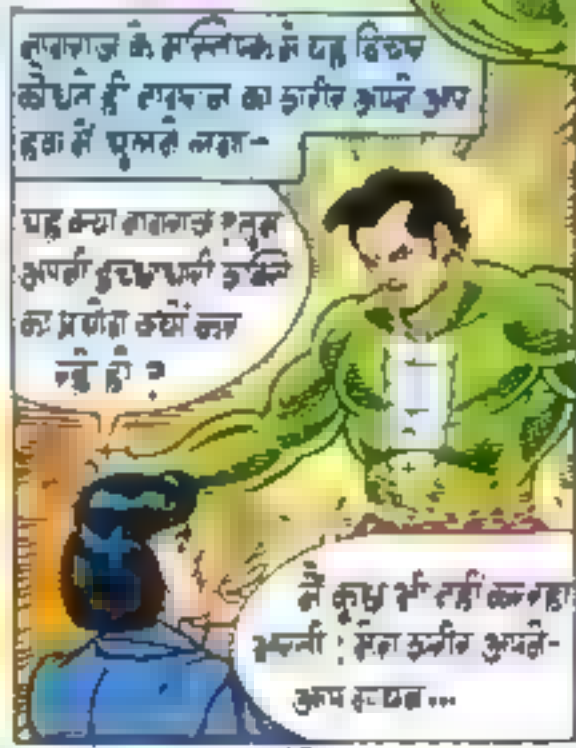 नागराज के मस्तिष्क में यह विचार
कौंधते ही नागराज का शरीर अपने आप
हवा में घुलने लगा-
यह क्या नागराज ? तुम
अपनी इच्छाधारी शक्ति
का प्रयोग क्यों कर
रहे हो ?
मैं कुछ भी नहीं कर रहा
भारती ! मेरा शरीर अपने-
आप गायब...